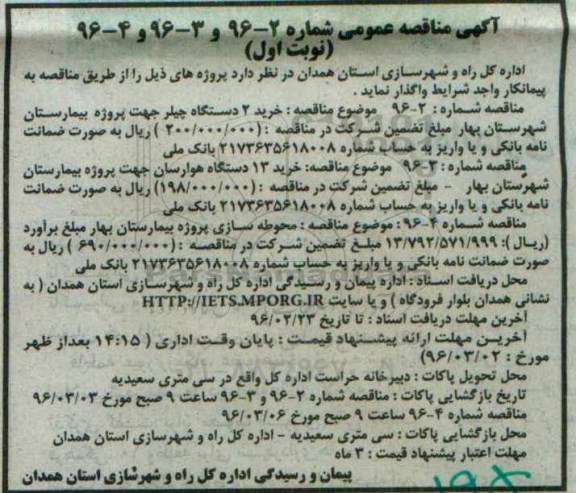 آگهی مناقصه عمومی شماره ۲-۹۶ و ۳-۹۶ و ۴-۹۶
(نوبت اول)
اداره کل راه و شهرسازی استان همدان در نظر دارد پروژه های ذیل را از طریق مناقصه به
پیمانکار واجد شرایط واگذار نماید .
مناقصه شماره : ۲-۹۶ موضوع مناقصه : خرید ۲ دستگاه چیلر جهت پروژه بیمارستان
شهرستان بهار مبلغ تضمین شرکت در مناقصه : (۲۰۰/۰۰۰/۰۰۰ ) ریال به صورت ضمانت
نامه بانکی و یا واریز به حساب شماره ۲۱۷۳۶۳۵۶۱۸۰۰۸ بانک ملی
مناقصه شماره : ۳-۹۶ موضوع مناقصه: خرید ۱۳ دستگاه هواسان جهت پروژه بیمارستان
شهرستان بهار - مبلغ تضمین شرکت در مناقصه : (۱۹۸/۰۰۰/۰۰۰) ریال به صورت ضمانت
نامه بانکی و یا واریز به حساب شماره ۲۱۷۳۶۳۵۶۱۸۰۰۸ بانک ملی
مناقصه شماره ۴-۹۶ : موضوع مناقصه : محوطه سازی پروژه بیمارستان بهار مبلغ برآورد
(ریال ): ۱۳/۷۹۲/۵۷۱/۹۹۹ مبلغ تضمین شرکت در مناقصه : (۶۹۰/۰۰۰/۰۰۰ ) ریال به
صورت ضمانت نامه بانکی و یا واریز به حساب شماره ۲۱۷۳۶۳۵۶۱۸۰۰۸ بانک ملی
محل دریافت اسناد : اداره پیمان و رسیدگی اداره کل راه و شهرسازی استان همدان ( به
نشانی همدان بلوار فرودگاه ) و یا سایت HTTP://IETS.MPORG.IR
آخرین مهلت دریافت اسناد : تا تاریخ ۹۶/۰۲/۲۳
آخرین مهلت ارائه پیشنهاد قیمت : پایان وقت اداری ( ۱۴:۱۵ بعداز ظهر
مورخ : ۹۶/۰۳/۰۲)
محل تحویل پاکات : دبیرخانه حراست اداره کل واقع در سی متری سعیدیه
تاریخ بازگشایی پاکات : مناقصه شماره ۲-۹۶ و ۳-۹۶ ساعت ۹ صبح مورخ ۹۶/۰۳/۰۳
مناقصه شماره ۴-۹۶ ساعت ۹ صبح مورخ ۹۶/۰۳/۰۶
محل بازگشایی پاکات : سی متری سعیدیه - اداره کل راه و شهرسازی استان همدان
مهلت اعتبار پیشنهاد قیمت : ۳ ماه
پیمان و رسیدگی اداره کل راه و شهرسازی استان همدان